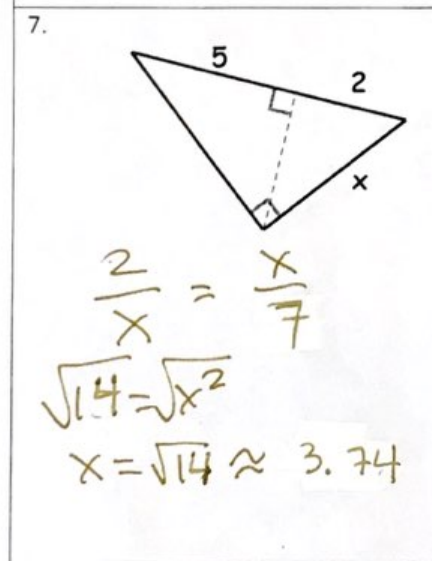 7.
5
2
x
2/x = x/7
√14 = √x²
x = √14 ≈ 3.74